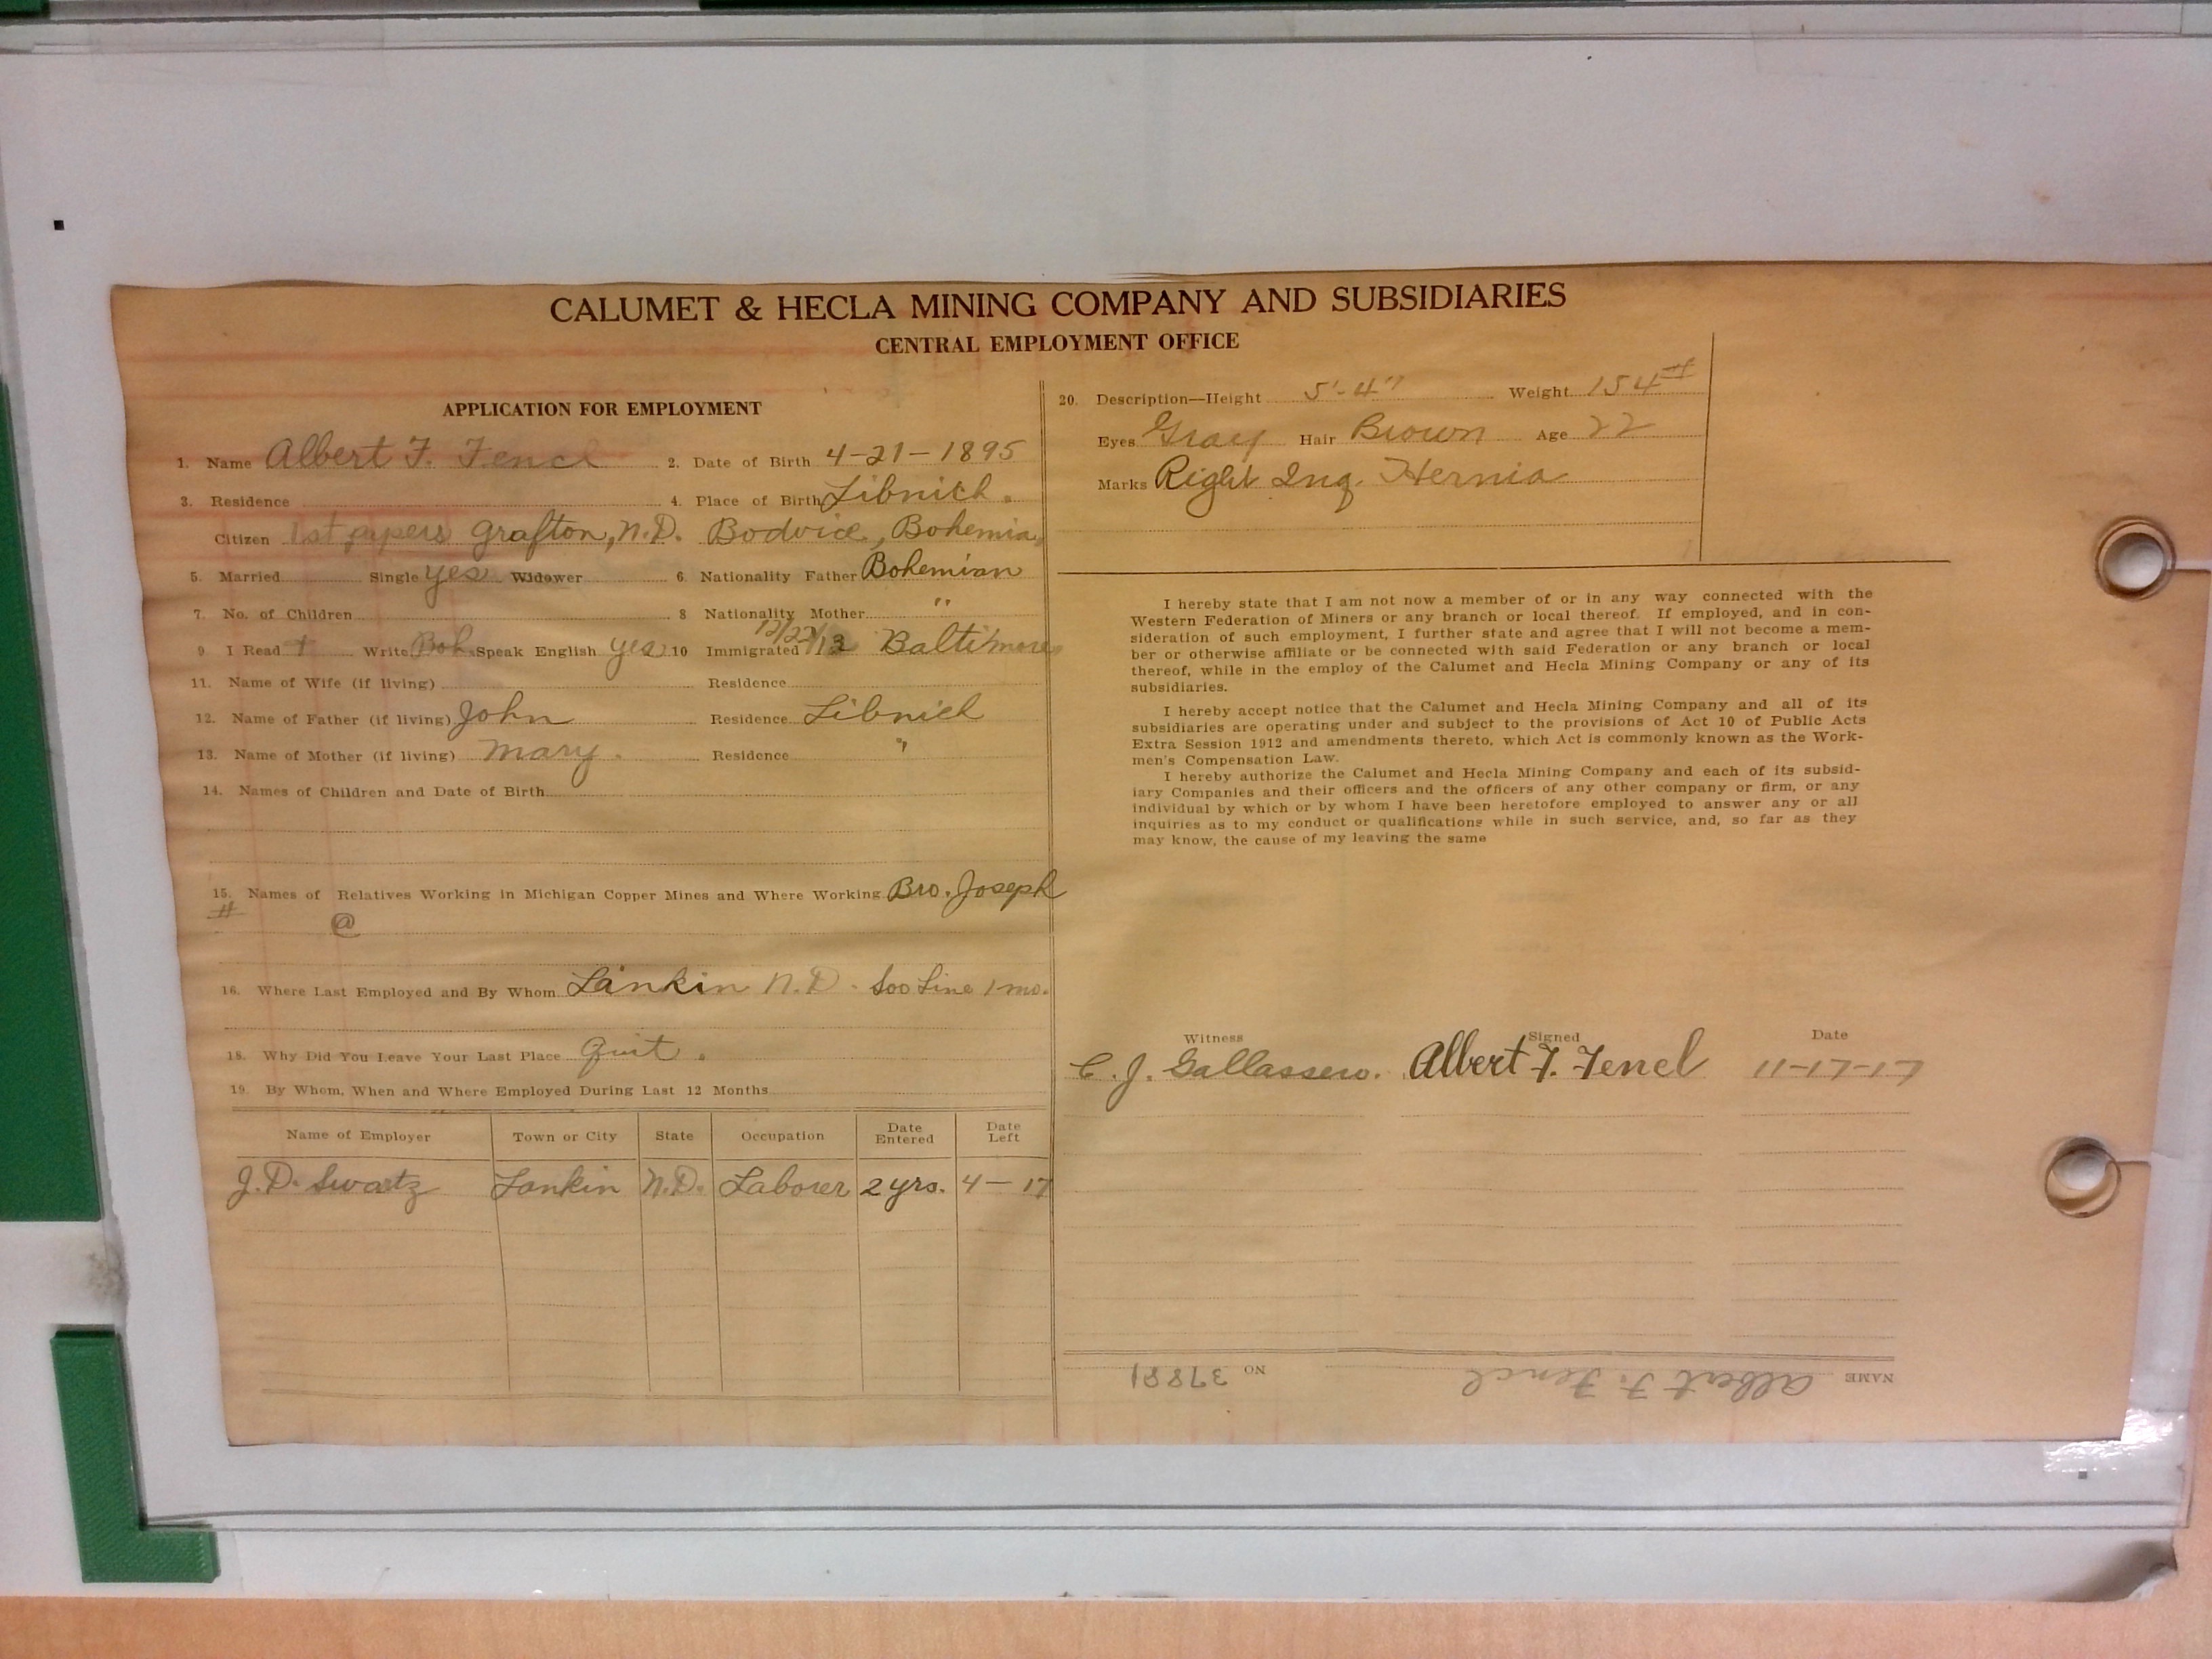 CALUMET & HECLA MINING COMPANY AND SUBSIDIARIES
CENTRAL EMPLOYMENT OFFICE
APPLICATION FOR EMPLOYMENT
1. Name Albert F. Fencl 2. Date of Birth 4-21-1895
3. Residence 4. Place of Birth Libnich.
Citizen 1st papers Grafton, N.D. Bodvice, Bohemia.
5. Married Single yes Widower 6. Nationality Father Bohemian
7. No. of Children 8 Nationality Mother "
9 I Read + Write Boh. Speak English yes 10 Immigrated 12/22/13 Baltimore
11. Name of Wife (if living) Residence
12. Name of Father (if living) John Residence Libnich
13. Name of Mother (if living) Mary. Residence "
14. Names of Children and Date of Birth
15. Names of Relatives Working in Michigan Copper Mines and Where Working Bro. Joseph
# @
16. Where Last Employed and By Whom Lankin N.D. Soo Line 1 mo.
18. Why Did You Leave Your Last Place Quit.
19. By Whom, When and Where Employed During Last 12 Months
Name of Employer Town or City State Occupation Date Entered Date Left
J.D. Swartz Lankin N.D. Laborer 2 yrs. 4-17
20. Description—Height 5'-4" Weight 154#
Eyes Gray Hair Brown Age 22
Marks Right Ing. Hernia
I hereby state that I am not now a member of or in any way connected with the
Western Federation of Miners or any branch or local thereof. If employed, and in con-
sideration of such employment, I further state and agree that I will not become a mem-
ber or otherwise affiliate or be connected with said Federation or any branch or local
thereof, while in the employ of the Calumet and Hecla Mining Company or any of its
subsidiaries.
I hereby accept notice that the Calumet and Hecla Mining Company and all of its
subsidiaries are operating under and subject to the provisions of Act 10 of Public Acts
Extra Session 1912 and amendments thereto, which Act is commonly known as the Work-
men's Compensation Law.
I hereby authorize the Calumet and Hecla Mining Company and each of its subsid-
iary Companies and their officers and the officers of any other company or firm, or any
individual by which or by whom I have been heretofore employed to answer any or all
inquiries as to my conduct or qualifications while in such service, and, so far as they
may know, the cause of my leaving the same
Witness Signed Date
C. J. Albert F. Fencl 11-17-17
NAME Albert F. Fencl NO 37881